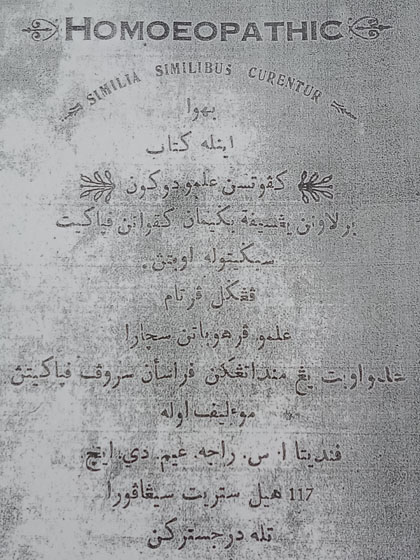 HOMOEOPATHIC
SIMILIA SIMILIBUS CURENTUR
بهوا
اينله كتاب
كڤوتسن علمو دوكون
برلاونن
سبكيتوله اوبتڽ
ڤڠݢل ڤرتام
علمو ڤرهوباتن سچارا
علمو اوبت يڠ منداتڠكن فراسأن سروڤ ڤپاكيتڽ
موءليف اوله
فنديتا ا. س. راجه. عيم. دي. ايچ
117 هيل ستريت سيڠاڤورا
تله درجسترکن